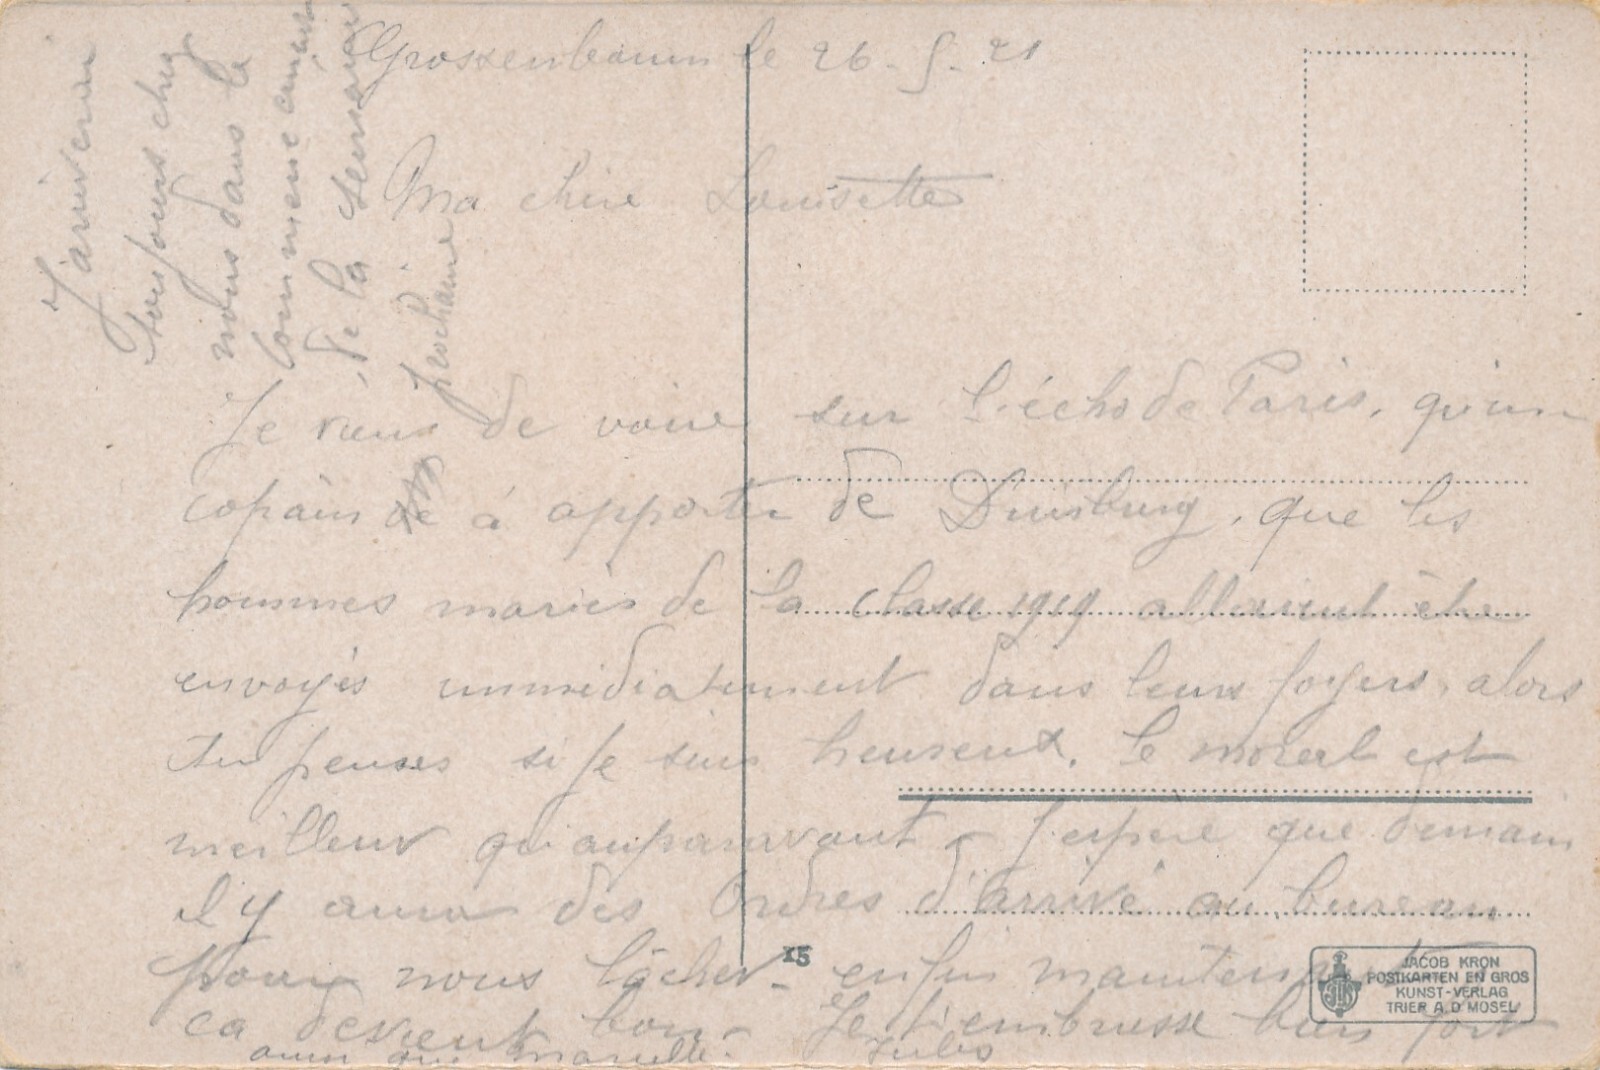 Grossenbaum le 26-5-21
Ma chère Louisette
Je viens de voire sur l'écho de Paris, qu'un
copain à apporter de Duisburg, que les
hommes mariés de la classe 1919 allaient être
envoyés immédiatement dans leurs foyers, alors
tu penses si je suis heureux. Le moral est
meilleur qu'auparavant - J'espère que demain
il y aura des Ordres d'arrivé au bureau
pour nous lâcher - enfin maintenant
ca devient bon. Je t'embrasse bien fort
ainsi que Marcelle. Jules
J'arriverai
toujours chez
nous dans le
commencement
de la semaine
prochaine
15
JACOB KRON
POSTKARTEN EN GROS
KUNST-VERLAG
TRIER A.D MOSEL